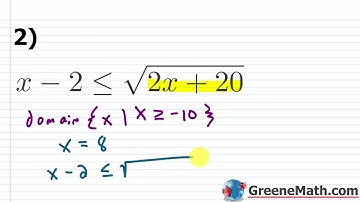 2)
x − 2 ≤ √(2x + 20)
domain {x | x ≥ -10}
x = 8
x - 2 ≤ √
GreeneMath.com